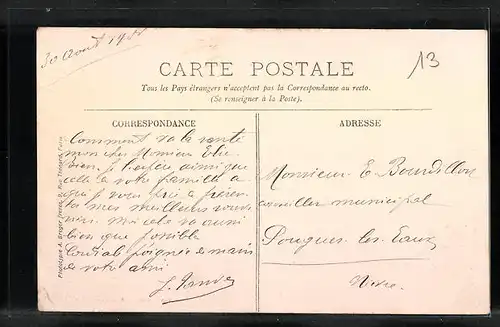 30 Aout
13
CARTE POSTALE
Tous les Pays étrangers n'acceptent pas la Correspondance au recto.
(Se renseigner à la Poste).
CORRESPONDANCE
ADRESSE
Comment va la santé
mon cher Monsieur Elie
bien j'espère ainsi que
celle de votre famille a
qui je vous prie de
mes meilleurs
va aussi
bien que possible
Cordiale poignée de main
de votre ami
Monsieur E. Bourdillon
conseiller municipal
Pougues-les-Eaux
Nièvre